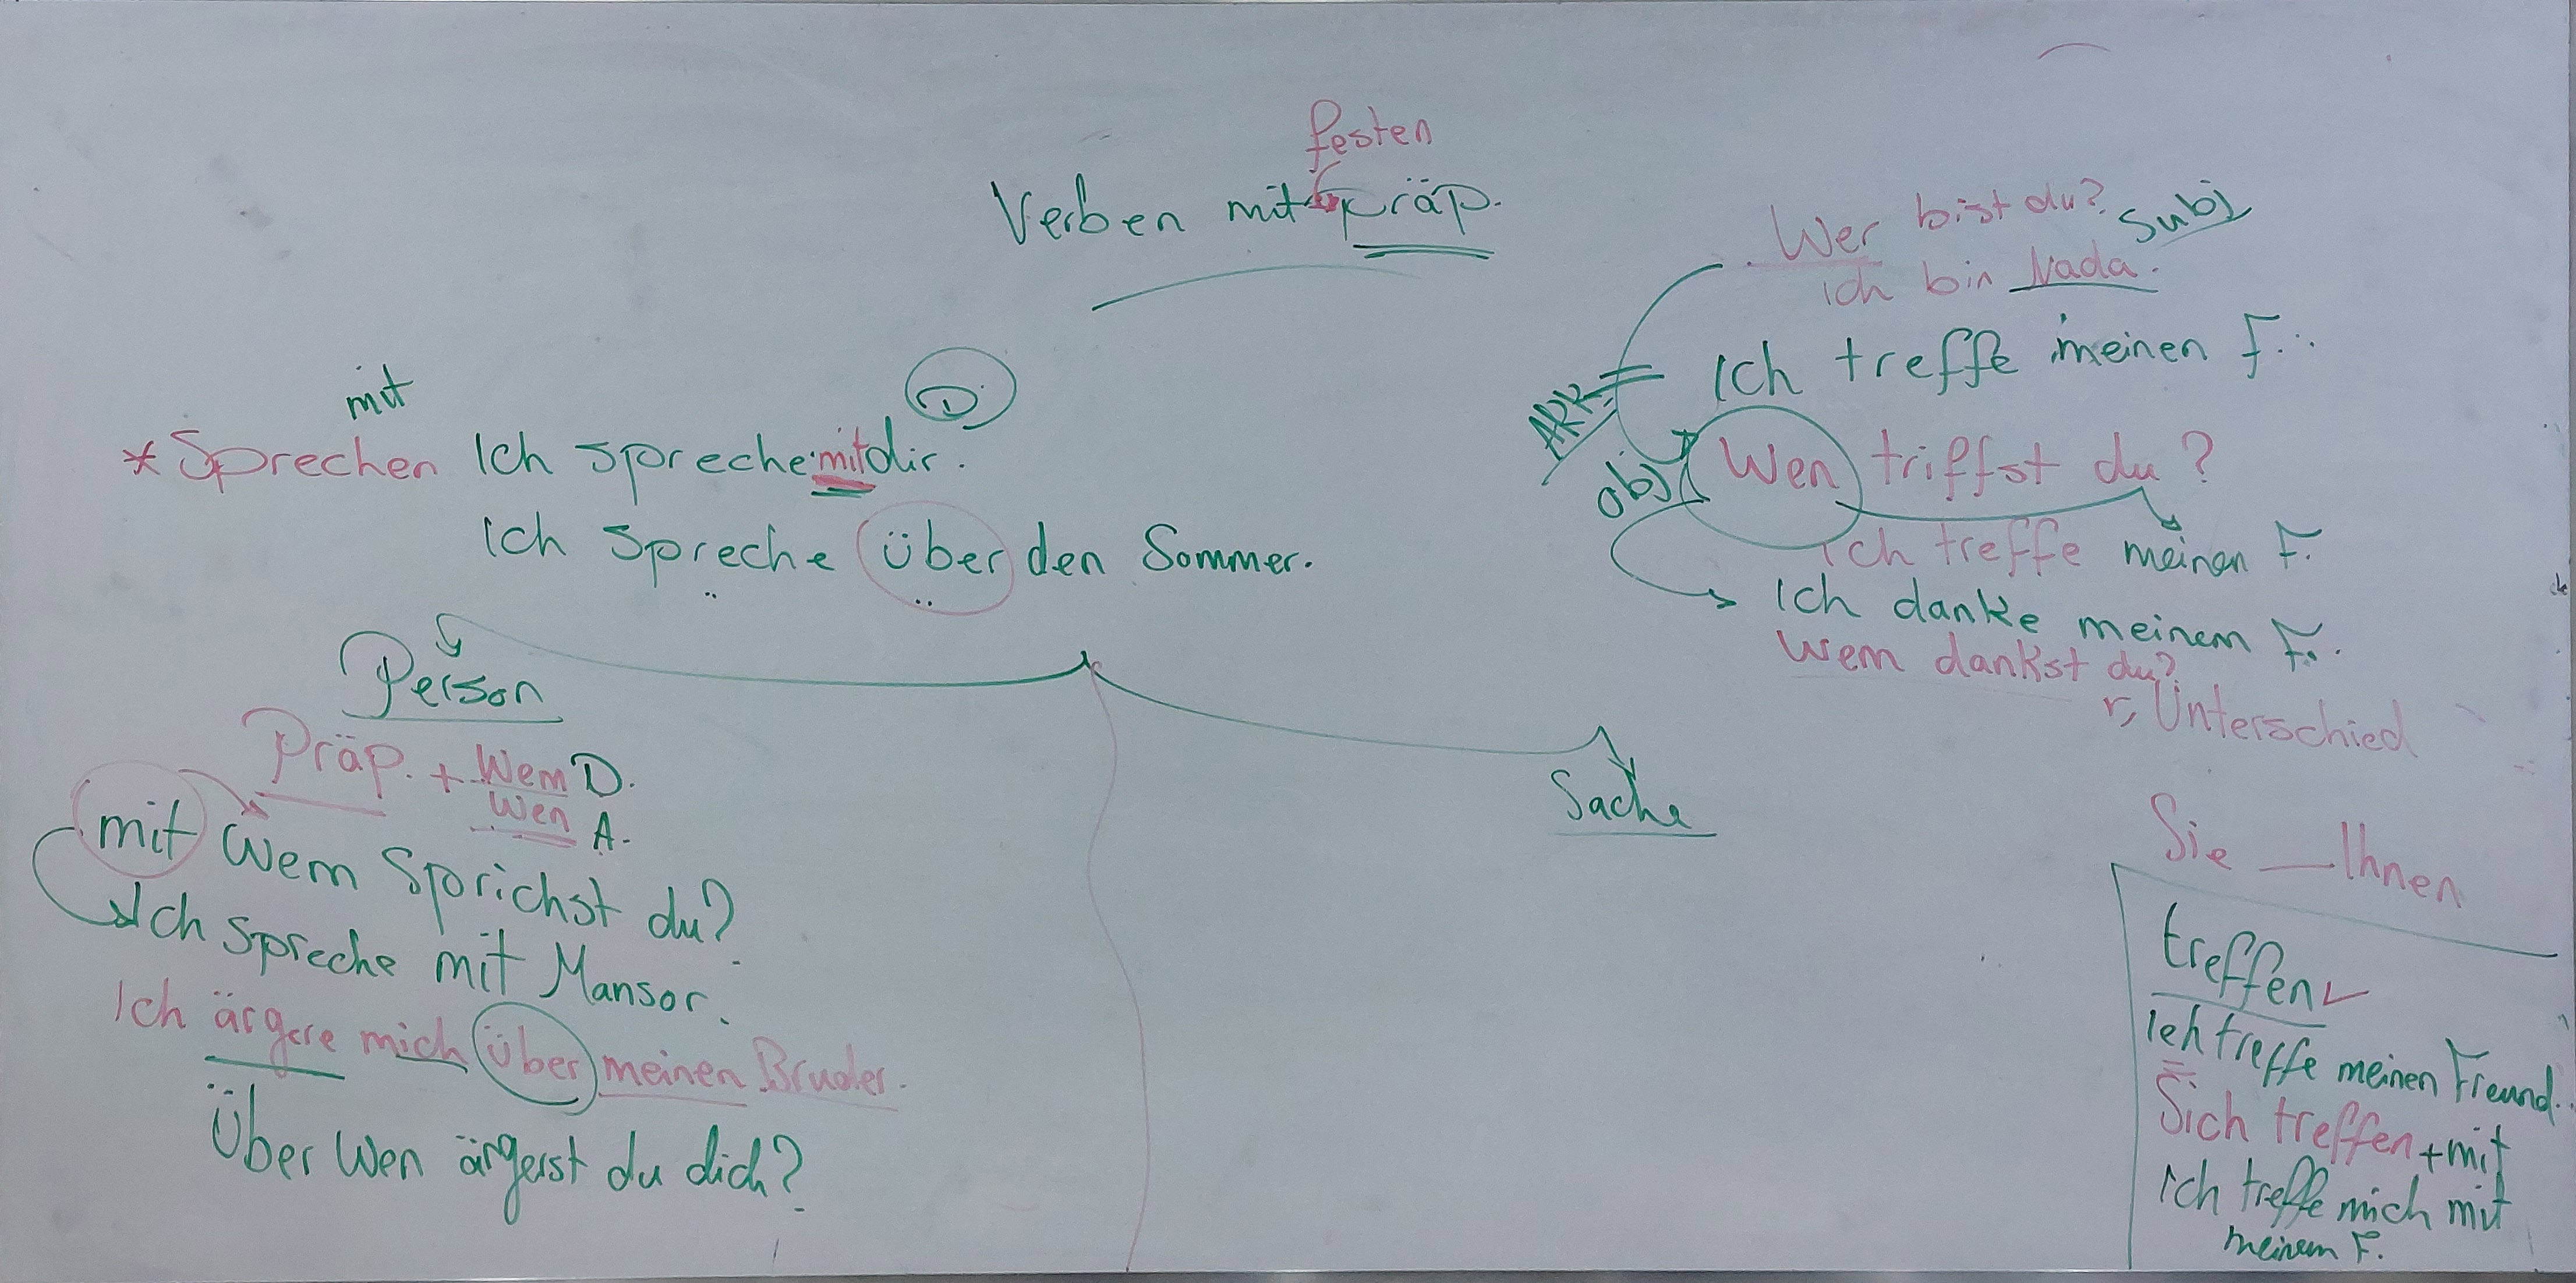 festen
Verben mit Präp.
mit
* Sprechen Ich spreche mit dir. D
Ich spreche über den Sommer.
Person
Präp. + Wem D.
Wen A.
mit wem sprichst du?
Ich spreche mit Mansor.
Ich ärgere mich über meinen Bruder.
Über Wen ärgerst du dich?
Sache
Wer bist du? Subj
ich bin Nada.
Ich treffe meinen F.
obj Wen triffst du?
ich treffe meinen F.
Ich danke meinem F.
Wem dankst du?
r, Unterschied
Sie — Ihnen
treffen
Ich treffe meinen Freund.
Sich treffen + mit
ich treffe mich mit
meinem F.